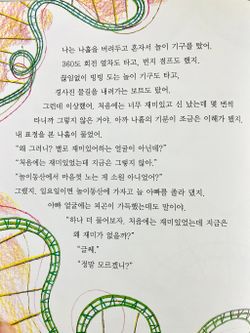 나는 나홀을 버려두고 혼자서 놀이 기구를 탔어.
360도 회전 열차도 타고, 번지 점프도 했지.
끊임없이 빙빙 도는 놀이 기구도 타고,
경사진 물길을 내려가는 보트도 탔어.
그런데 이상했어. 처음에는 너무 재미있고 신 났는데 몇 번씩
타니까 그렇지 않은 거야. 아까 나홀의 기분이 조금은 이해가 됐지.
내 표정을 본 나홀이 물었어.
"왜 그러니? 별로 재미있어하는 얼굴이 아닌데?"
"처음에는 재미있었는데 지금은 그렇지 않아."
"놀이동산에서 마음껏 노는 게 소원 아니었어?"
그랬지. 일요일이면 놀이동산에 가자고 늘 아빠를 졸라 댔지.
아빠 얼굴에는 피곤이 가득했는데도 말이야.
"하나 더 물어보자. 처음에는 재미있었는데 지금은
왜 재미가 없을까?"
"글쎄."
"정말 모르겠니?"